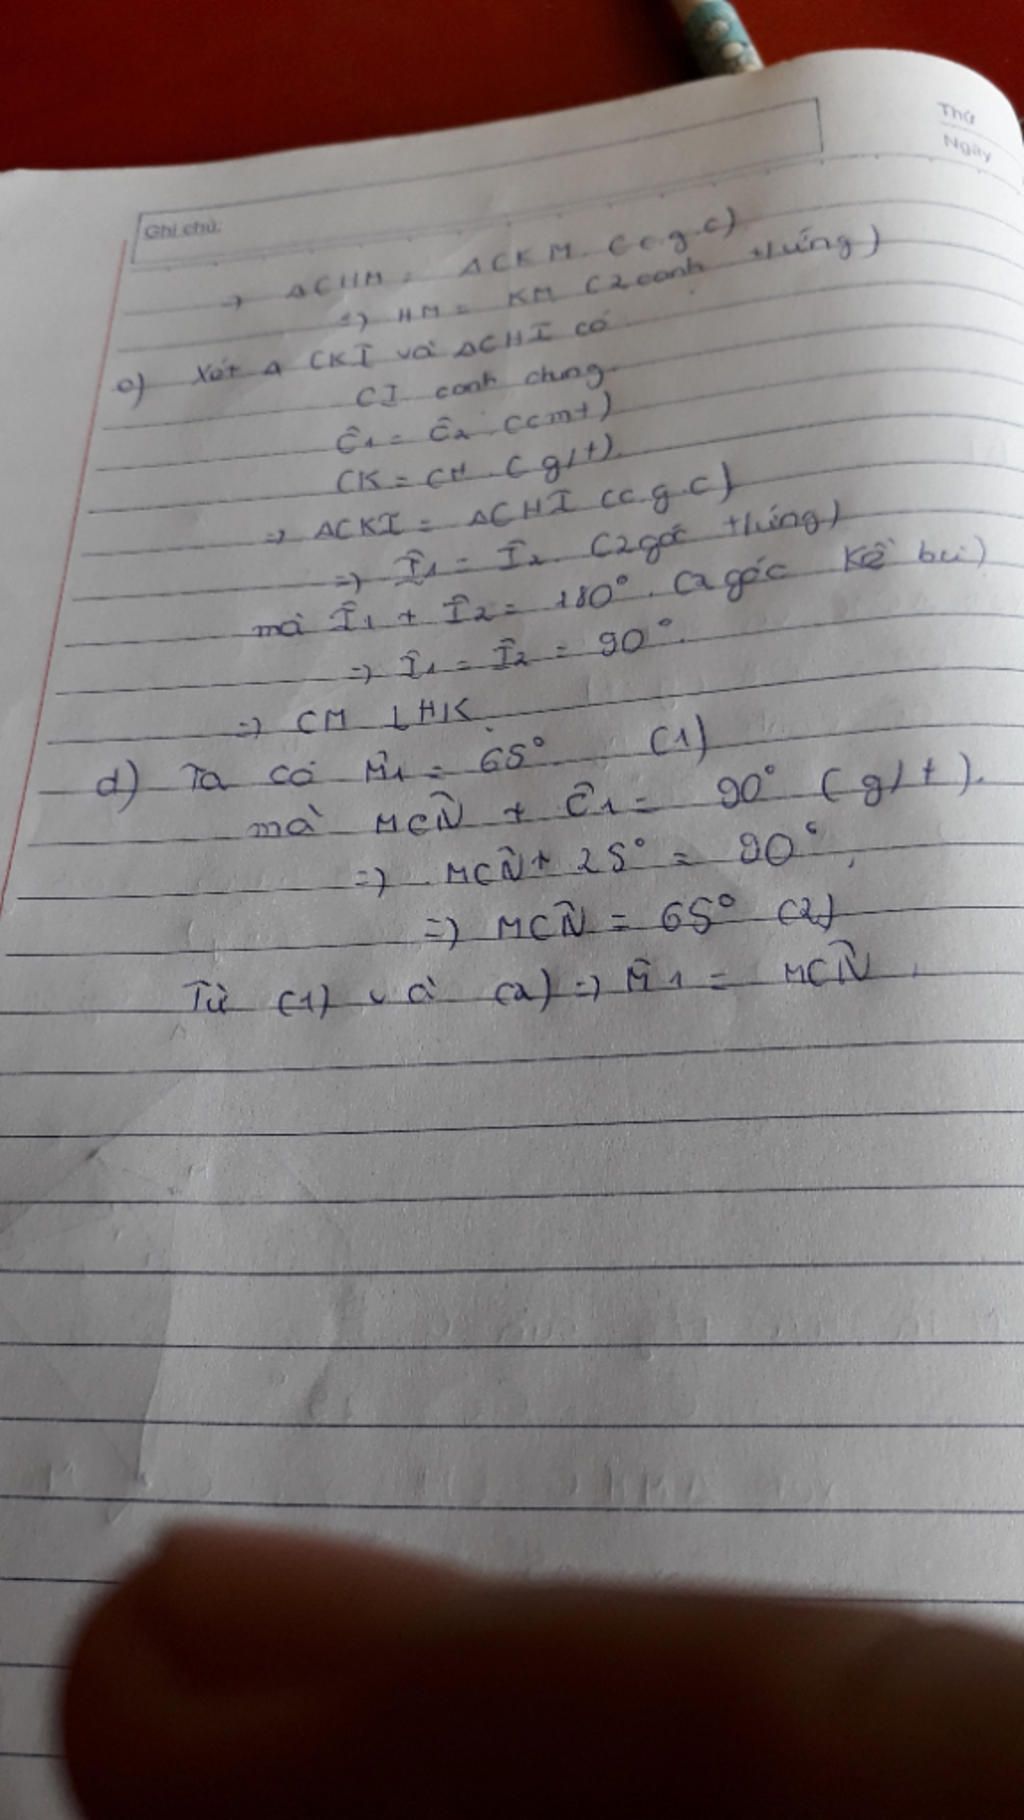 Thứ
Ngày
Ghi chú:
→ ΔCHM = ΔCKM (c.g.c)
=> HM = KM (2 cạnh t/ứng)
c) Xét Δ CKI và ΔCHI có
CI cạnh chung
Ĉ1 = Ĉ2 (cmt)
CK = CH (g/t)
=> ΔCKI = ΔCHI (c.g.c)
=> Î1 = Î2 (2 góc t/ứng)
mà Î1 + Î2 = 180° (2 góc kề bù)
=> Î1 = Î2 = 90°.
=> CM ⊥ HK
d) Ta có M̂1 = 65° (1)
mà MCN̂ + Ĉ1 = 90° (g/t).
=> MCN̂ + 25° = 90°
=> MCN̂ = 65° (2)
Từ (1) và (2) => M̂1 = MCN̂